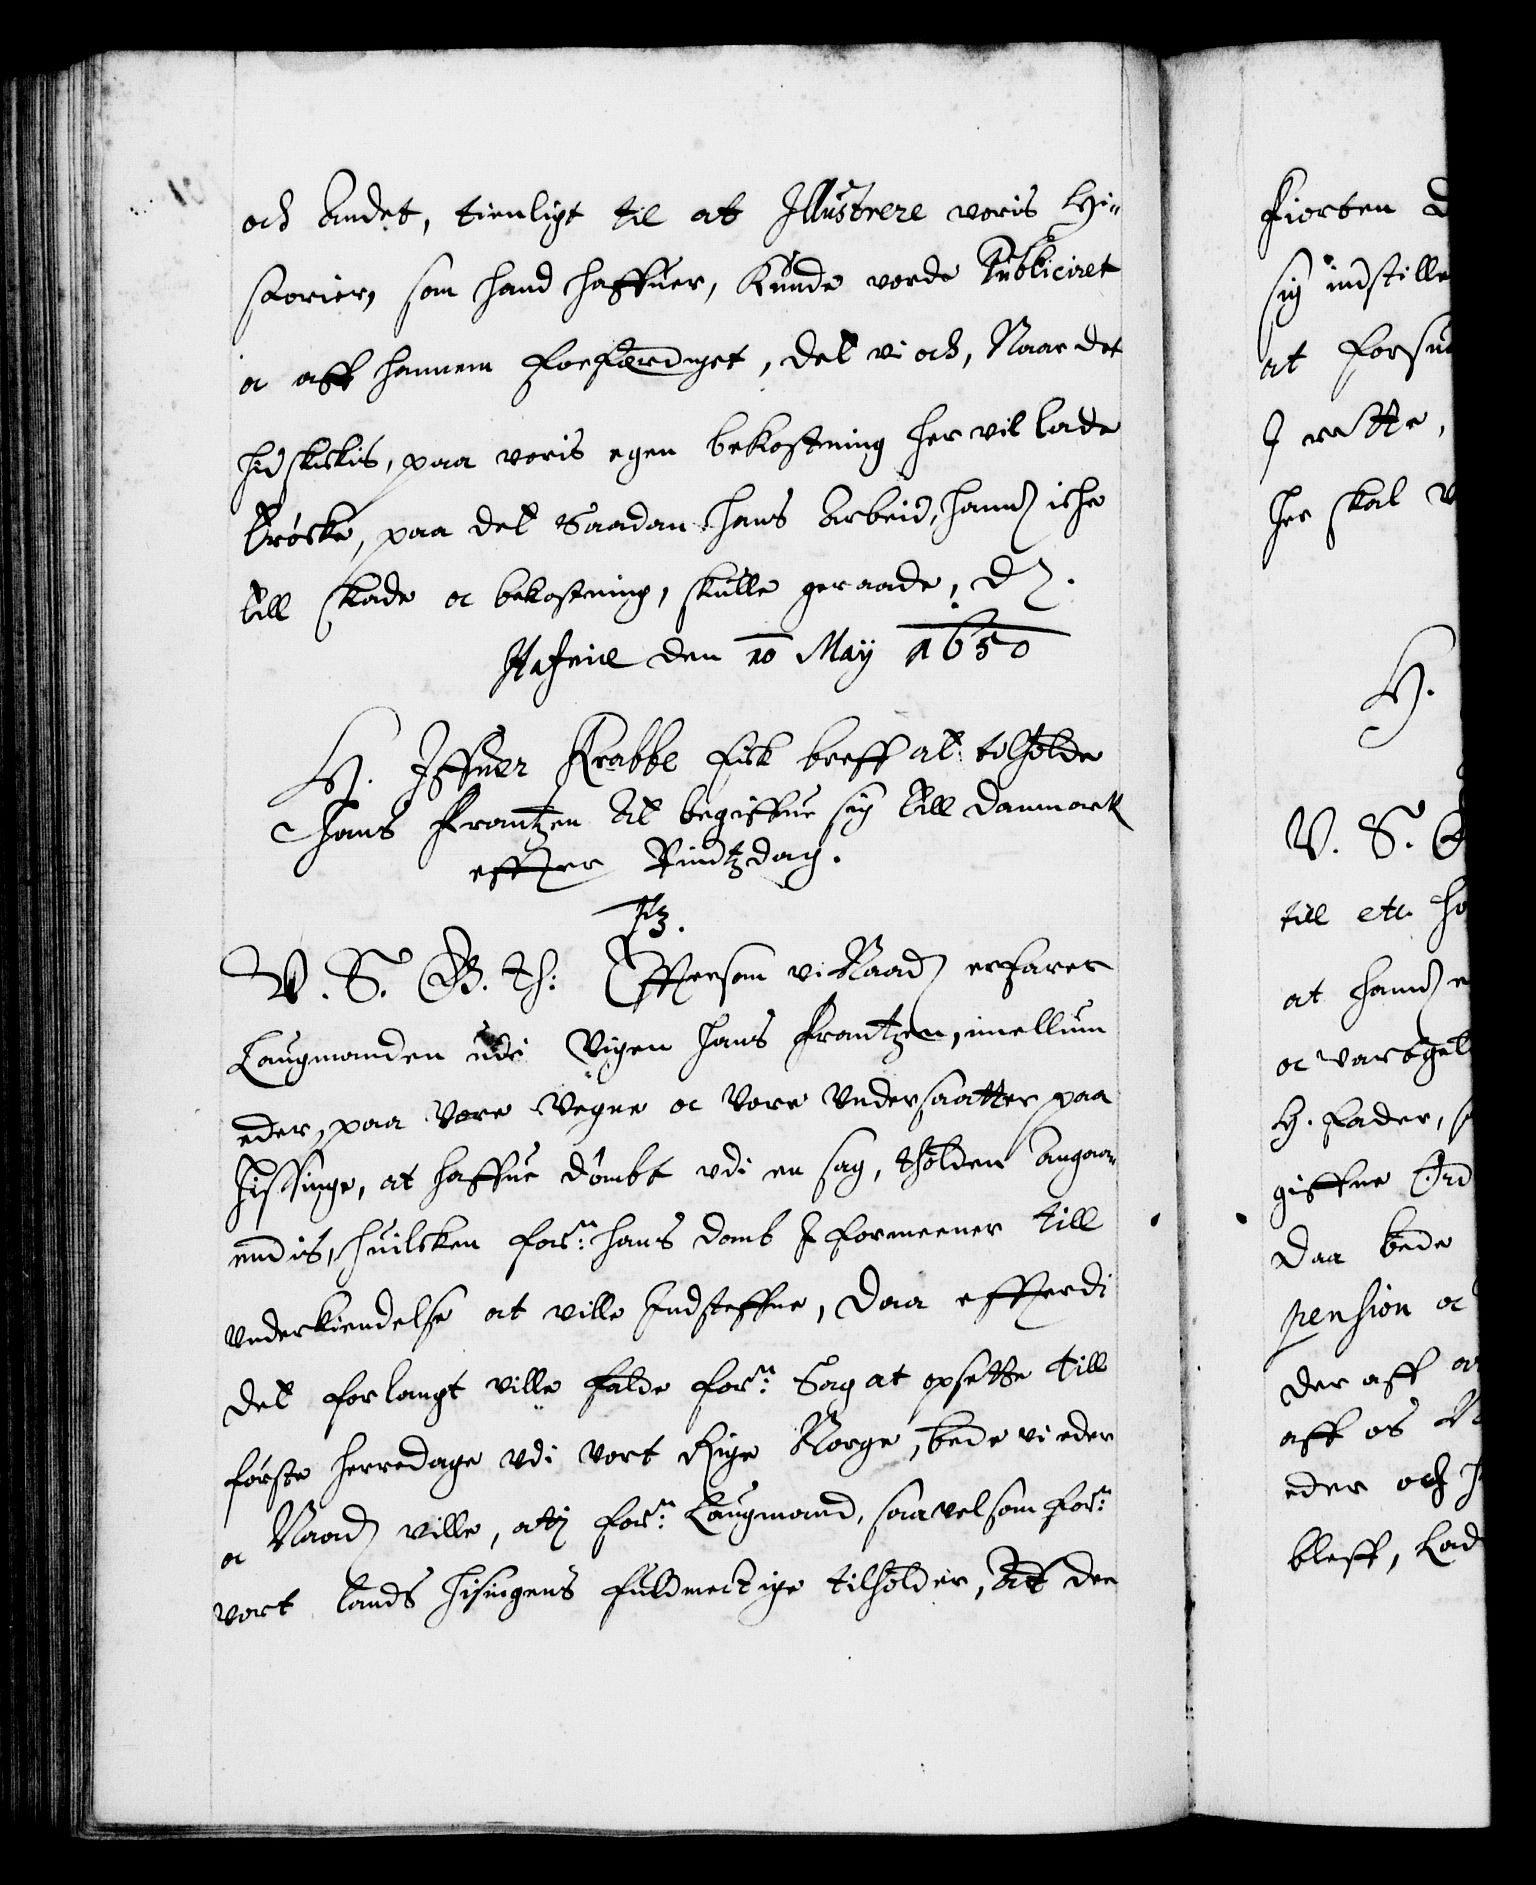 och Andet, tienligt til at Illustrere voris Hi-
storier, som hand haffuer, Kunde vorde Publiceret
oc aff hannem forferdiget, det vi och, Naar det
hid skickis, paa voris egen bekostning her vil lade
tröcke, paa det Saadan hans Arbeid, hannd iche
till skade oc bekostning, skulle geraade,
Hafniæ den 10 May 1650
H. Iffuer Krabbe fick breff at tilholde
Hans Frantzen at begiffue sig till Danmark
effter Pindtzdag.
F3.
V. S. G. Th: Effttersom vi Naadl erfarer
Laugmanden udi Vigen Hans Frantzen, imellum
eder, paa Vore Vegne oc Vore Vndersaatter paa
Hissinge, at haffue dömbt vdi en sag, tholden Angaa-
endis, huilcken forne: hans domb I formeener till
Vnderkiendelse at ville Indsteffne, Daa effterdi
det forlangt ville falde forne: Sag at opsette till
förste herredage vdi vort Rige Norge, bede vi eder
oc Naadl ville, at i forne: Laugmand, saavelsom forne:
vort lands Hisingens fuldmectige tilholder, At de
Fiorten D
sig indstille
at forsua
I rette,
her skal v
H.
V. S. G
till etc. ho
at hannd e
oc
H. Fader, s
giffne Ord
Daa bede
pension oc
der aff
aff os
eder och
bleff, Lad